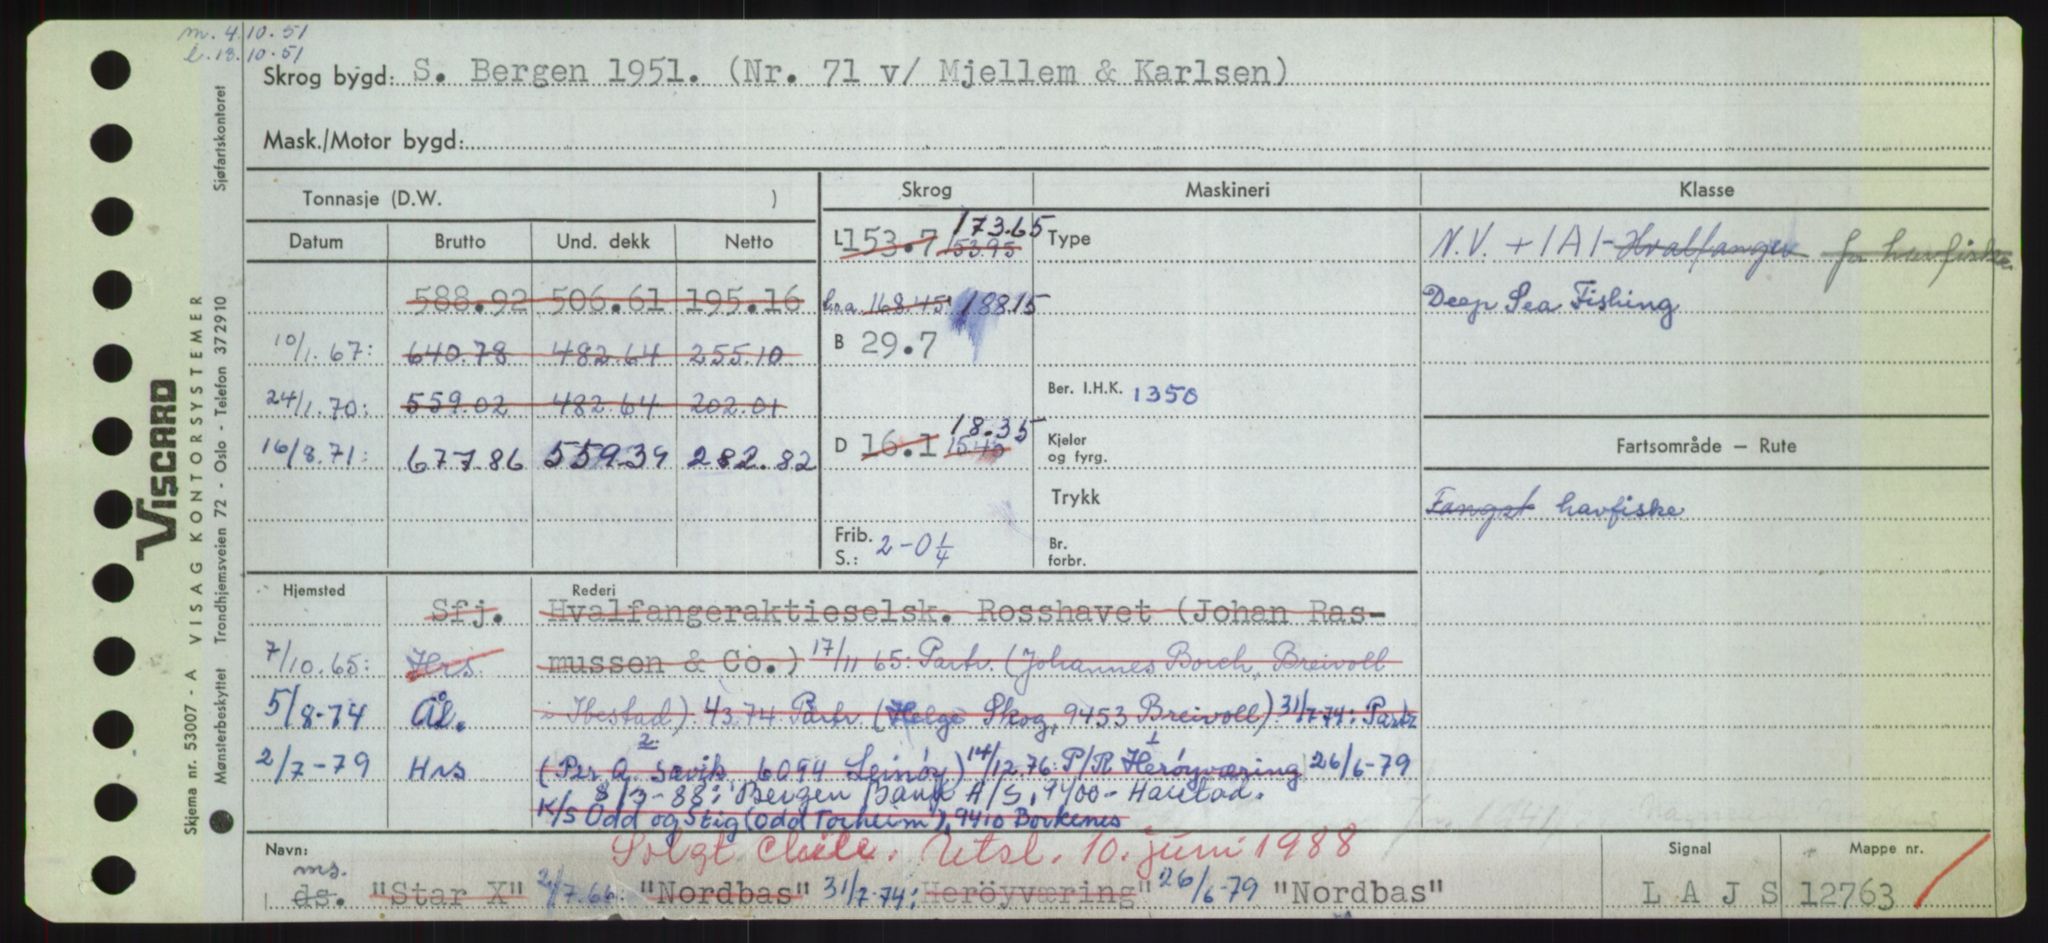 m. 4.10.51
l. 13.10.51
Skrog bygd: S. Bergen 1951. (Nr. 71 v/ Mjellem & Karlsen)
Mask./Motor bygd:
Tonnasje (D.W. )
Skrog
Maskineri
Klasse
Datum Brutto Und. dekk Netto
L 153.7 153.95 173.65
Type
N.V. +1A1- Hvalfanger for havfiske
588.92 506.61 195.16
l.o.a. 168.45' 188.15
Deep Sea Fishing
10/1.67: 640.78 482.64 255.10
B 29.7
24/1.70: 559.02 482.64 202.01
Ber. I.H.K. 1350
16/8.71: 677.86 559.39 282.82
D 16.1 15.40 18.35
Kjeler og fyrg.
Fartsområde – Rute
Trykk
Fangst havfiske
Frib. S.: 2-0 1/4
Br. forbr.
Hjemsted
Rederi
Sfj. Hvalfangeraktieselsk. Rosshavet (Johan Ras-
7/10.65: Hrs mussen & Co.) 17/11 65: Partr. (Johannes Borch, Breivoll
5/8-74 Ål. i Ibestad) 4/3.74 Partr. (Helge Skog, 9453 Breivoll) 31/7-74: Partr
2 1
2/7-79 Hrs (Per A. Sævik 6094 Leinøy) 14/12.76: P/R Herøyværing 26/6-79
8/3-88: Bergen Bank A/S, 9400 - Harstad.
K/S Odd og Stig (Odd Torheim), 9410 Borkenes
Solgt Chile. Utsl. 10. juni 1988
Navn:
Signal
Mappe nr.
ms.
ds. "Star X" 2/7.66: "Nordbas" 31/7-74: Heröyværing" 26/6-79 "Nordbas"
L A J S 12763
Sjøfartskontoret
VISCARD
VISAG KONTORSYSTEMER
Skjema nr. 53007 - A
Trondhjemsveien 72 - Oslo - Telefon 372910
Mønsterbeskyttet